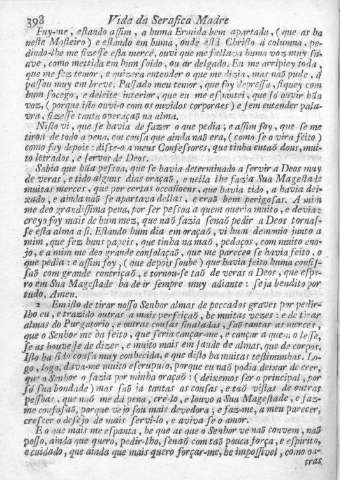 398 Vida da Serafica Madre
Fuy-me, estando assim, a huma Ermida bem apartada, (que as ha
neste Mosteiro) e estando em huma, onde està Christo á columna, pe-
dindo-lhe me fizesse esta mercè, ouvi que me fallava huma voz muy sua-
ave, como mettida em hum soido, ou ár delgado. Eu me arripiey toda,
que me fez temor, e quizera entender o que me dizia, mas naõ pude, q̃
passou muy em breve. Passado meu temor, que foy depressa, fiquey com
hum socego, e deleite interior, que eu me espantei, que sò ouvir húa
voz, (porque isto ouvi-o com os ouvidos corporaes) e sem entender pala-
vra, fizesse tanta operaçaõ na alma.
Nisto vi, que se havia de fazer o que pedia, e assim foy, que se me
tirou de todo a pena, em cousa que ainda naõ era, (como se o vira feito)
como foy depois: disse-o a meus Confessores, que tinha entaõ dous, mui-
to letrados, e servos de Deos.
Sabia que húa pessoa, que se havia determinado a servir a Deos muy
de veras, e tido alguns dias oraçaõ, e nella lhe fazia Sua Magestade
muitas merces, que por certas occasioens, que havia tido, a havia dei-
xado, e ainda naõ se apartava dellas, e eraõ bem perigosas. A mim
me deo grandissima pena, por ser pessoa a quem queria muito, e devia:
creyo foy mais de hum mez, que naõ fazia senaõ pedir a Deos tornas-
se esta alma a si. Estando hum dia em oraçaõ, vi hum demonio junto a
mim, que fez huns papeis, que tinha na maõ, pedaços, com muito eno-
jo, e a mim me deo grande consolaçaõ, que me pareceo se havia feito, o
que pedia: e assim foy, (que depois soube) que havia feito huma confis-
saõ com grande contriçaõ, e tornou-se taõ de veras a Deos, que espe-
ro em Sua Magestade ha de ir sempre muy adiante: seja bendito por
tudo, Amen.
2 Em isto de tirar nosso Senhor almas de peccados graves por pedir-
lho eu, e trazido outras a mais perfeiçaõ, he muitas vezes: e de tirar
almas do Purgatorio, e outras cousas sinaladas, saõ tantas as merces,
que o Senhor me ha feito, que seria cançar-me, e cançar a quem o lesse,
se as houvesse de dizer, e muito mais em saude de almas, que de corpos.
Isto ha sido cousa muy conhecida, e que disto ha muitas testimunhas. Lo-
go, logo, dava-me muito escrupulo, porque eu naõ podia deixar de crer,
que o Senhor o fazia por minha oraçaõ: (deixemos ser o principal, por
só sua bondade) mas saõ já tantas as cousas, e taõ vistas de outras
pessoas, que naõ me dá pena, crê-lo, e louvo a Sua Magestade, e faz-
me confusaõ, porque vejo sou mais devedora; e faz-me, a meu parecer,
crescer o desejo de mais servi-lo, e aviva-se o amor.
E o que mais me espanta, he que as que o Senhor vè naõ convem, naõ
posso, ainda que quero, pedir-lho, senaõ com taõ pouca força, e espirito,
e cuidado, que ainda que mais quero forçar-me, he impossivel, como ou-
tras